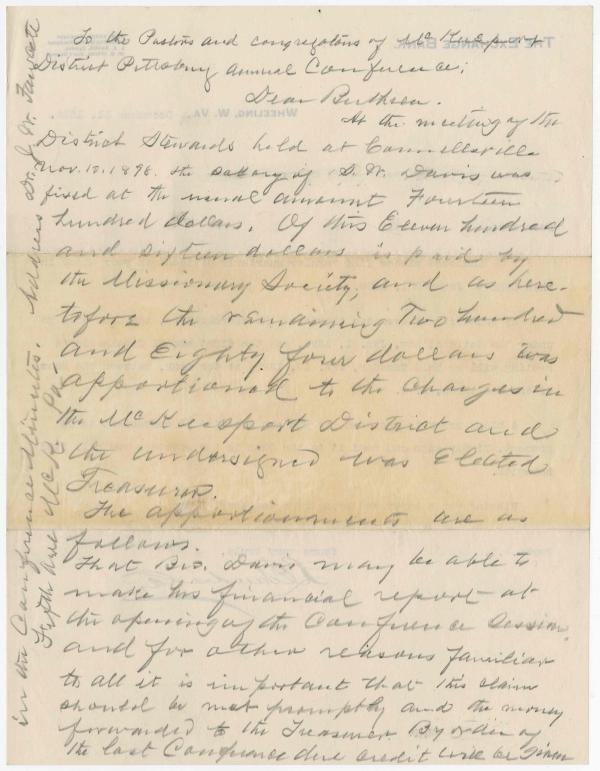 To the Pastors and congregations of McKeesport
District Pittsburg annual Conference;
Dear Brethren.
At the meeting of the
District Stewards held at Connellsville
Nov. 1898. the salary of S. W. Davis was
fixed at the usual amount Fourteen
hundred dollars. Of this Eleven hundred
and sixteen dollars is paid by
the Missionary Society, and as here-
tofore the remaining Two hundred
and Eighty four dollars was
apportioned to the Charges in
the McKeesport District and
the undersigned was Elected
Treasurer.
The apportionments are as
follows.
That Bro. Davis may be able to
make his financial report at
the opening of the Conference Session,
and for other reasons familiar
to all it is important that this claim
should be met promptly and the money
forwarded to the Treasurer By order of
the last Conference due credit will be given
in the Conference Minutes. Address Dr. J. W. Fawcett
Fifth ave McK. Pa.
THE EXCHANGE BANK
WHEELING, W. VA.